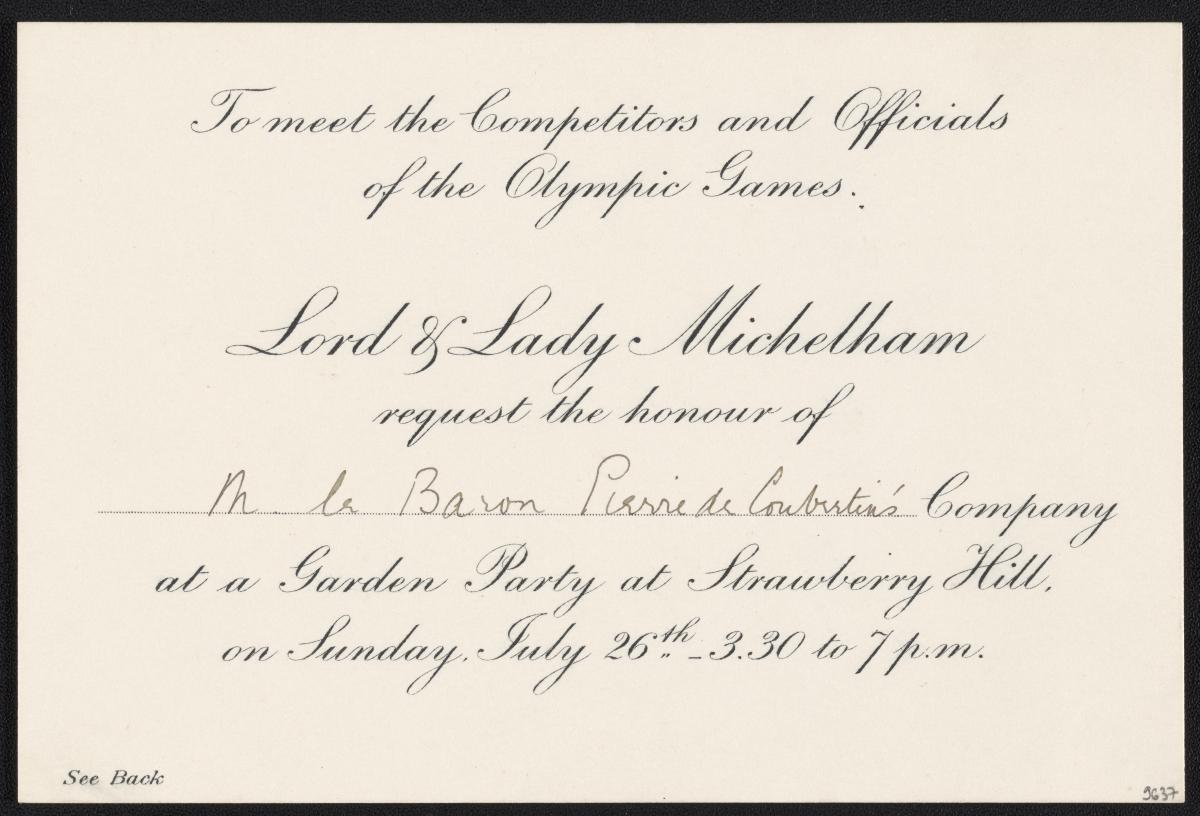 To meet the Competitors and Officials
of the Olympic Games.
Lord & Lady Michelham
request the honour of
M. le Baron Pierre de Coubertin's Company
at a Garden Party at Strawberry Hill,
on Sunday, July 26th - 3.30 to 7 p.m.
See Back
9637